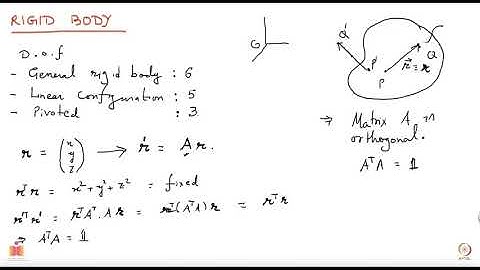 RIGID BODY
D.o.f
- General rigid body : 6
- Linear configuration : 5
- Pivoted : 3
r = (x y z) → r' = A r.
rᵀr = x² + y² + z² = fixed
r'ᵀr' = rᵀAᵀ.Ar = rᵀ(AᵀA)r = rᵀr
⇒ AᵀA = 𝟙
G
Q' Q
P' P r⃗ = r
→ Matrix A is
orthogonal.
AᵀA = 𝟙